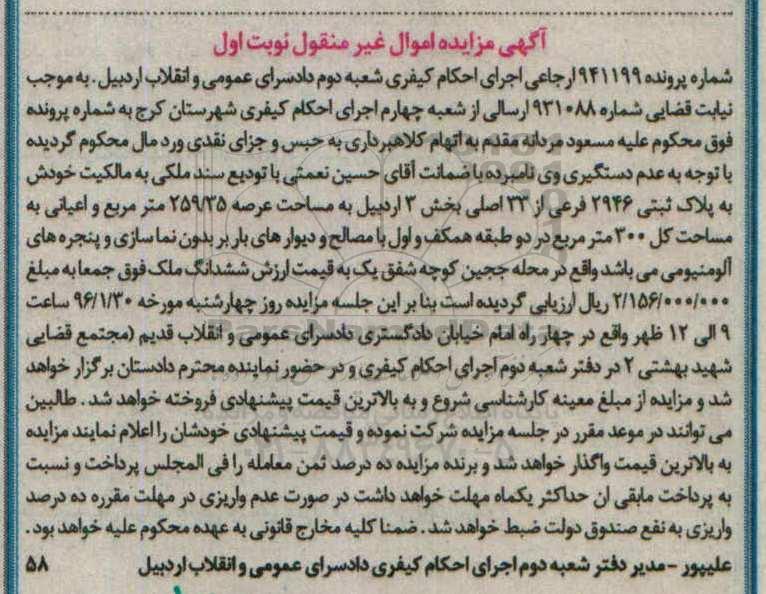 آگهی مزایده اموال غیر منقول نوبت اول
شماره پرونده ۹۴۱۱۹۹ ارجاعی اجرای احکام کیفری شعبه دوم دادسرای عمومی و انقلاب اردبیل . به موجب
نیابت قضایی شماره ۹۳۱۰۸۸ ارسالی از شعبه چهارم اجرای احکام کیفری شهرستان کرج به شماره پرونده
فوق محکوم علیه مسعود مردانه مقدم به اتهام کلاهبرداری به حبس و جزای نقدی ورد مال محکوم گردیده
با توجه به عدم دستگیری وی نامبرده با ضمانت آقای حسین نعمتی با تودیع سند ملکی به مالکیت خودش
به پلاک ثبتی ۲۹۴۶ فرعی از ۳۳ اصلی بخش ۳ اردبیل به مساحت عرصه ۲۵۹/۳۵ متر مربع و اعیانی به
مساحت کل ۳۰۰ متر مربع در دو طبقه همکف و اول با مصالح و دیوار های بار بر بدون نما سازی و پنجره های
آلومنیومی می باشد واقع در محله ججین کوچه شفق یک به قیمت ارزش ششدانگ ملک فوق جمعا به مبلغ
۲/۱۵۶/۰۰۰/۰۰۰ ریال ارزیابی گردیده است بنا بر این جلسه مزایده روز چهارشنبه مورخه ۹۶/۱/۳۰ ساعت
۹ الی ۱۲ ظهر واقع در چهار راه امام خیابان دادگستری دادسرای عمومی و انقلاب قدیم (مجتمع قضایی
شهید بهشتی ۲ در دفتر شعبه دوم اجرای احکام کیفری و در حضور نماینده محترم دادستان برگزار خواهد
شد و مزایده از مبلغ معینه کارشناسی شروع و به بالاترین قیمت پیشنهادی فروخته خواهد شد . طالبین
می توانند در موعد مقرر در جلسه مزایده شرکت نموده و قیمت پیشنهادی خودشان را اعلام نمایند مزایده
به بالاترین قیمت واگذار خواهد شد و برنده مزایده ده درصد ثمن معامله را فی المجلس پرداخت و نسبت
به پرداخت مابقی ان حداکثر یکماه مهلت خواهد داشت در صورت عدم واریزی در مهلت مقرره ده درصد
واریزی به نفع صندوق دولت ضبط خواهد شد . ضمنا کلیه مخارج قانونی به عهده محکوم علیه خواهد بود .
علیپور - مدیر دفتر شعبه دوم اجرای احکام کیفری دادسرای عمومی و انقلاب اردبیل ۵۸